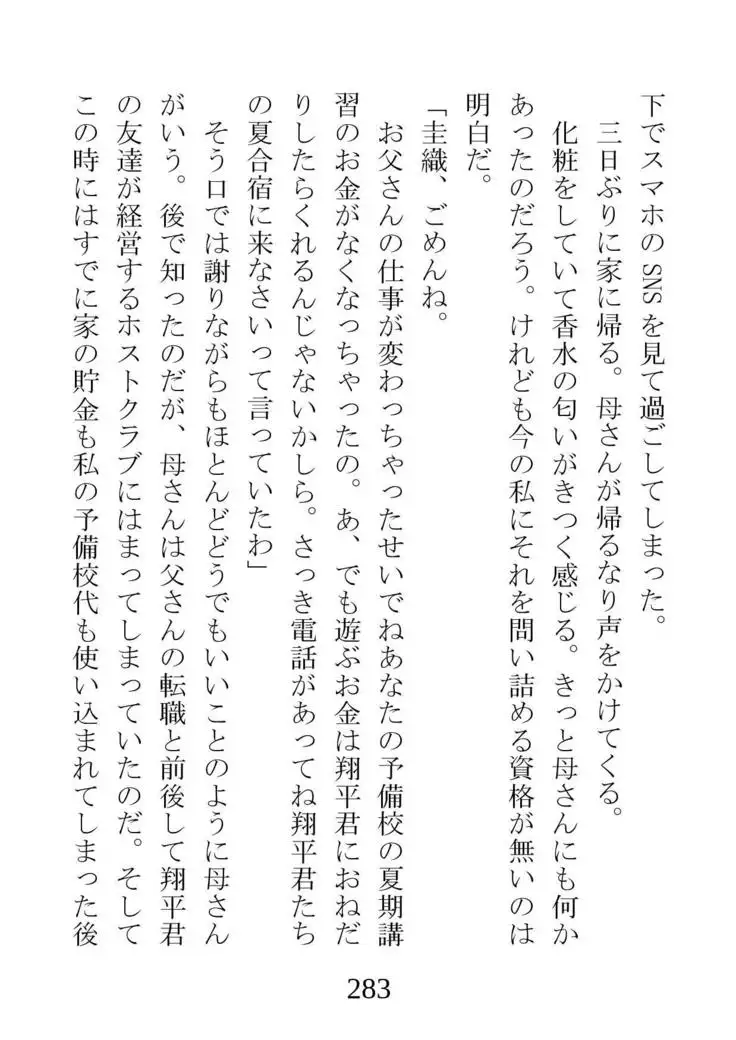 下でスマホの SNS を見て過ごしてしまった。
三日ぶりに家に帰る。母さんが帰るなり声をかけてくる。
化粧をしていて香水の匂いがきつく感じる。きっと母さんにも何か
あったのだろう。けれども今の私にそれを問い詰める資格が無いのは
明白だ。
「圭織、ごめんね。
お父さんの仕事が変わっちゃったせいでねあなたの予備校の夏期講
習のお金がなくなっちゃったの。あ、でも遊ぶお金は翔平君におねだ
りしたらくれるんじゃないかしら。さっき電話があってね翔平君たち
の夏合宿に来なさいって言っていたわ」
そう口では謝りながらもほとんどどうでもいいことのように母さん
がいう。後で知ったのだが、母さんは父さんの転職と前後して翔平君
の友達が経営するホストクラブにはまってしまっていたのだ。そして
この時にはすでに家の貯金も私の予備校代も使い込まれてしまった後
283